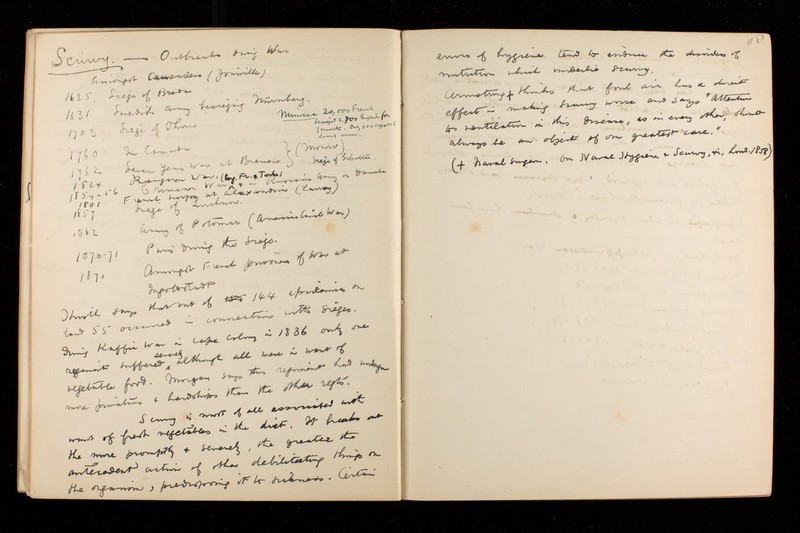 Scurvy. — Outbreaks during War
Amongst Crusaders (Joinville)
1625. Siege of Breda
1631 Swedish army besieging Nürnberg.
1703 Siege of Thorn
20,000 French
1760 In Canada
1762 Seven Years War at } (Monro)
1824 War.
1854-56 Crimean War (Eng. Fr. & Turks) & in army on Danube
1801 French at Alexandria (Larrey)
1857 Siege of Lucknow.
1862 Army of Potomac (American Civil War)
1870-71 Paris during the siege.
1871 Amongst French prisoners of war at
Ingolstadt
Hirsch says that out of 144 epidemics on
land 55 occurred in connection with sieges.
During Kaffir War in Cape Colony in 1836 only one
regiment suffered severely, although all were in want of
vegetable food. Morgan says this regiment had undergone
more privations & hardships than the other regts.
Scurvy is most of all associated with
want of fresh vegetables in the diet. It breaks out
the more promptly & severely, the greater the
antecedent action of other debilitating things on
the organism, predisposing it to sickness. Certain
errors of hygiene tend to evidence the disorders of
nutrition which underlie scurvy.
Armstrong + thinks that foul air has a direct
effect in making scurvy worse and says "Attention
to ventilation in this disease, as in every other, should
always be an object of our greatest care."
(+ Naval Surgeon. On Naval Hygiene & Scurvy, &c, Lond. 1858)